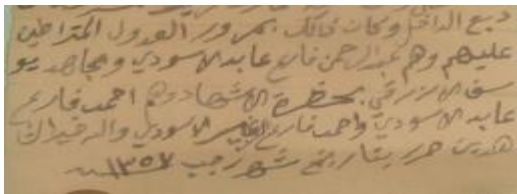 دبع الداخل وكان ذالك بمرور العدول المتراضين
عليهم وهم عبدالرحمن فارع عابد الاسودي ومجاهد يو
سف الازرقي بحضرة الاشهاد وهم احمد فارع
عابد الاسودي واحمد فارع الاسودي والدخيران
هدين حرر بتاريخ شهر رجب ١٣٥٧